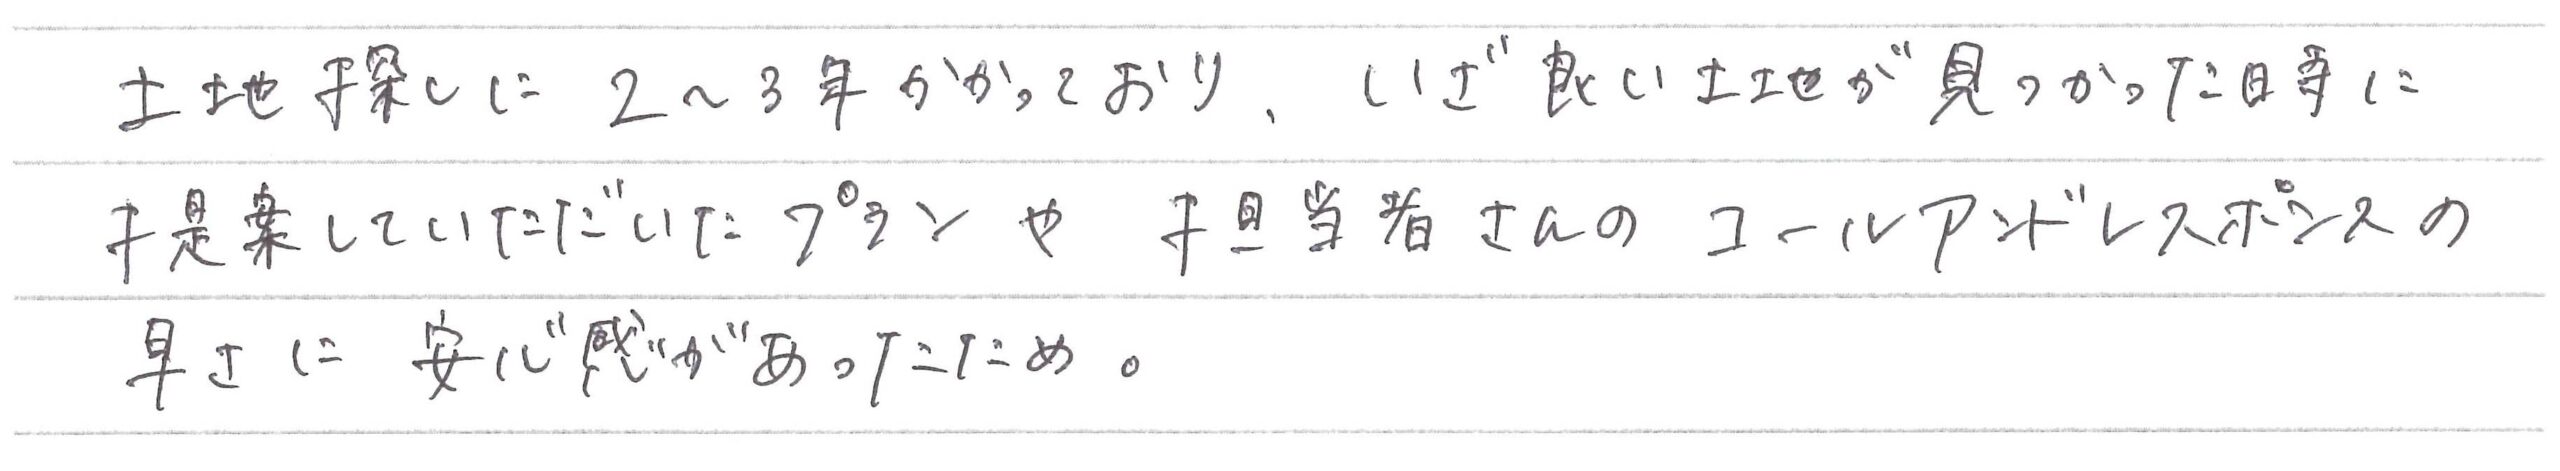 土地探しに2～3年かかっており、いざ良い土地が見つかった時に
提案していただいたプランや担当者さんのコールアンドレスポンスの
早さに安心感があったため。